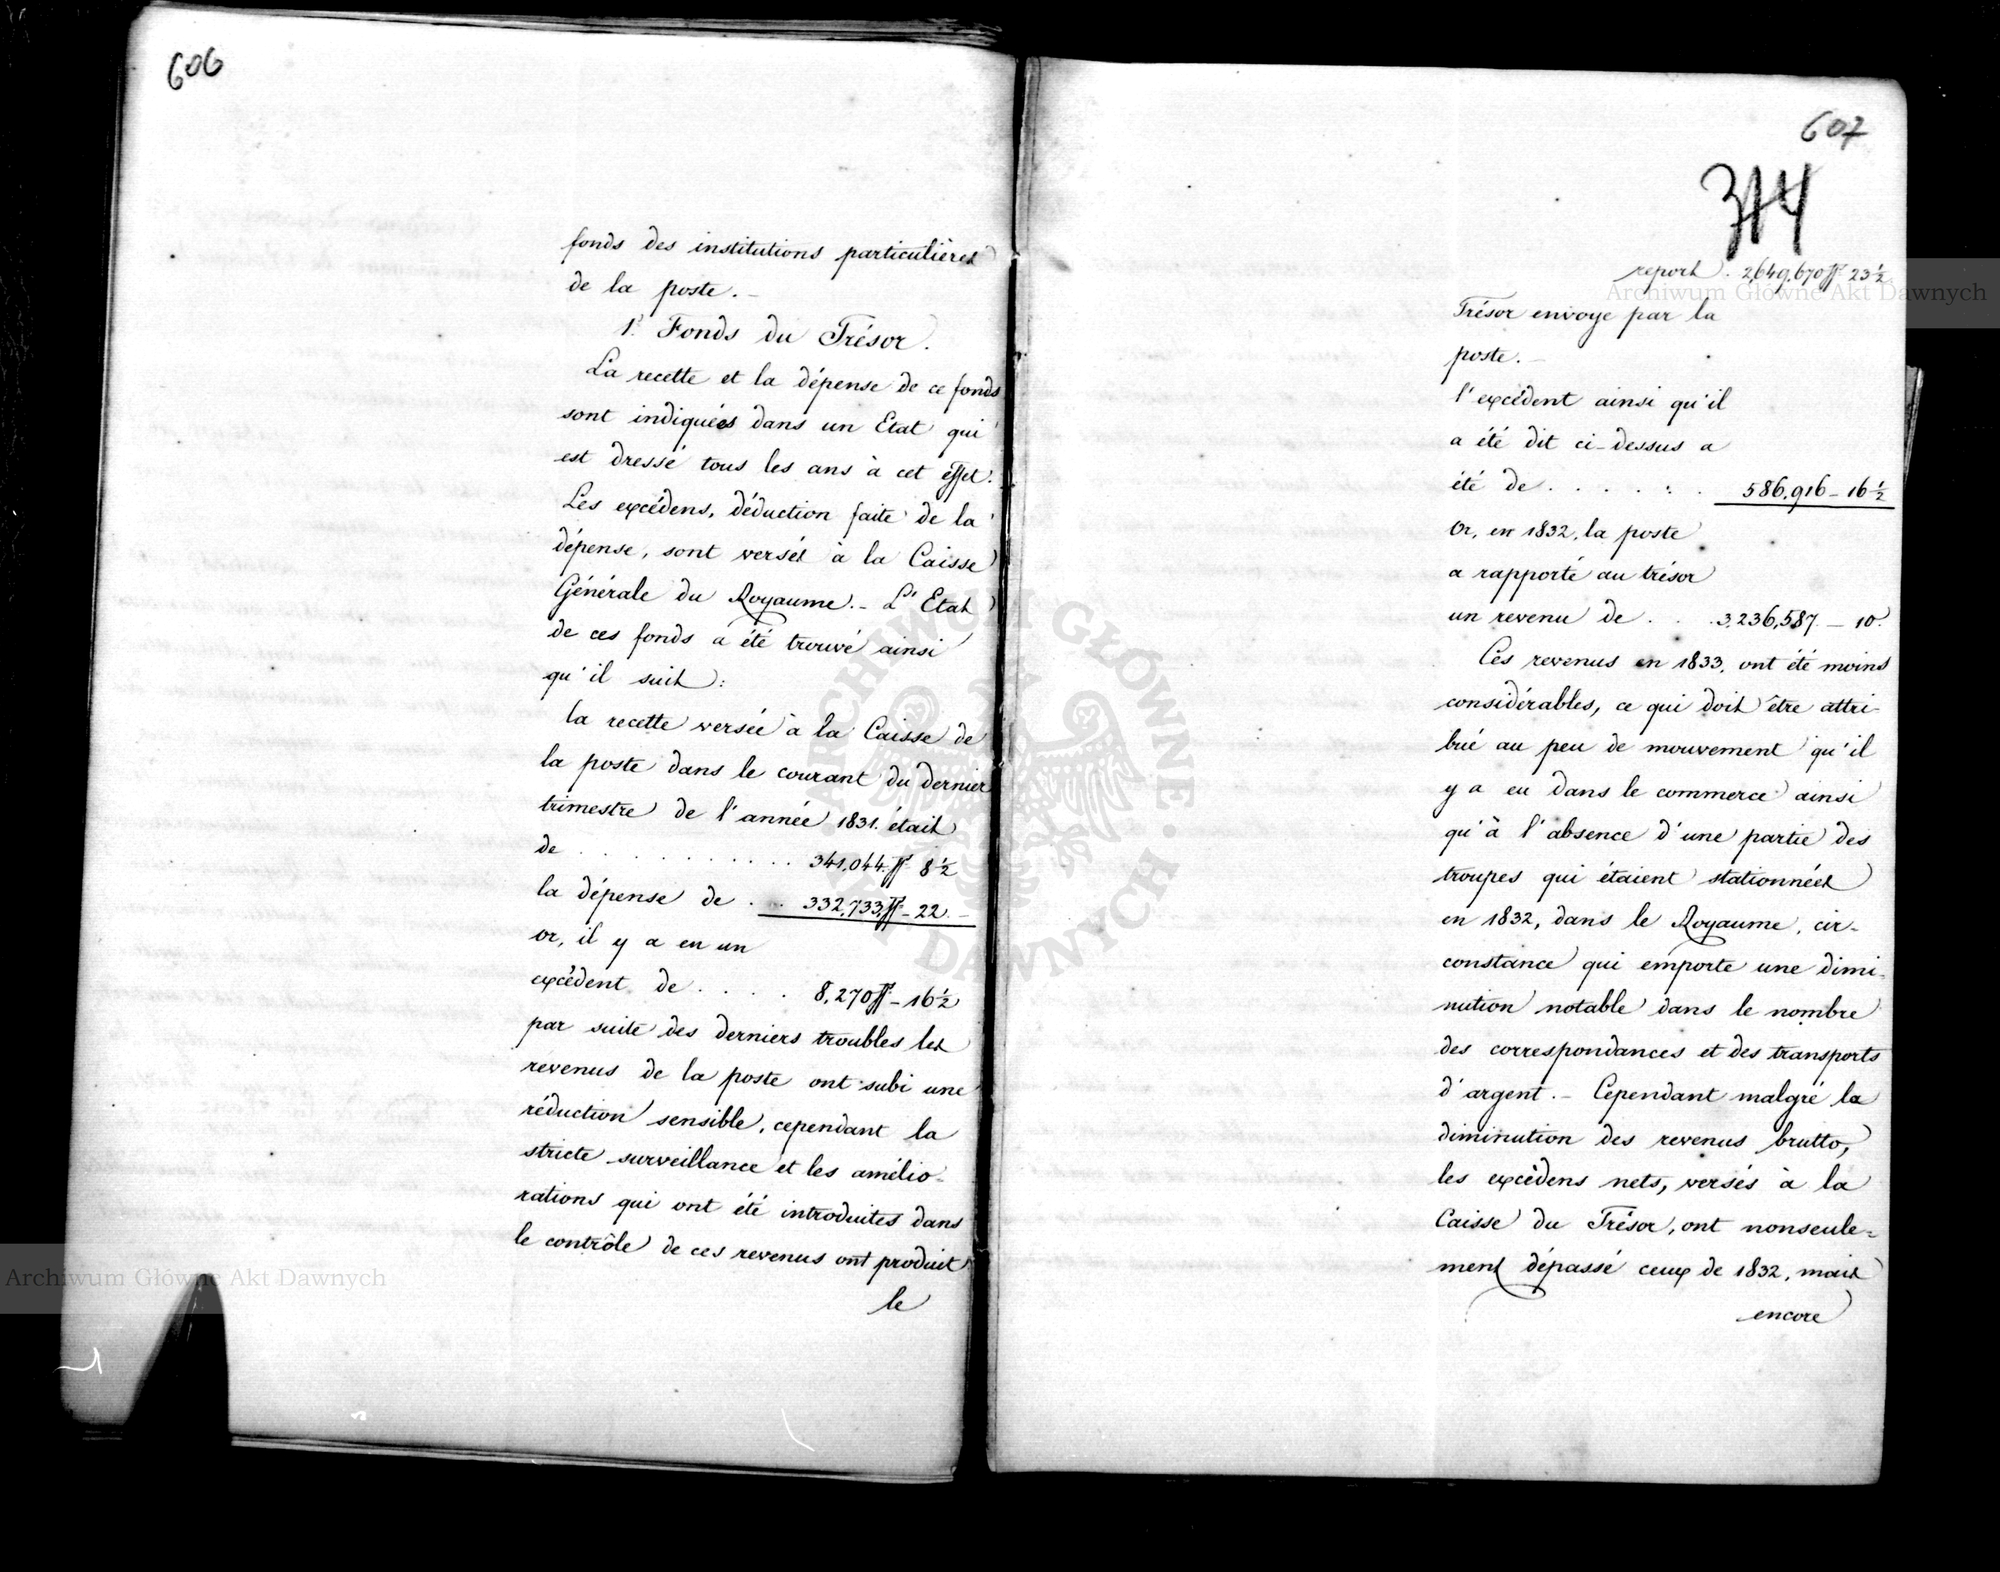 606
fonds des institutions particulières
de la poste. -
1.° Fonds du Trésor.
La recette et la dépense de ce fonds
sont indiquées dans un Etat qui
est dressé tous les ans à cet effet.
Les excédens, déduction faite de la
dépense, sont versés à la Caisse
Générale du Royaume. - L'Etat
de ces fonds a été trouvé ainsi
qu'il suit:
la recette versée à la Caisse de
la poste dans le courant du dernier
trimestre de l'année 1831. était
de . . . . . . . . . . . 341,044. ff 8½
la dépense de . . . 332,733. ff - 22. -
or, il y a eu un
excédent de . . . . 8,270 ff - 16½
par suite des derniers troubles les
revenus de la poste ont subi une
réduction sensible, cependant la
stricte surveillance et les amélio-
rations qui ont été introduites dans
le contrôle de ces revenus ont produit
le
607
314
report. 2,649,670 ff 23½
Trésor envoye par la
poste. -
l'excédent ainsi qu'il
a été dit ci-dessus a
été de . . . . . . . 586,916 - 16½
Or, en 1832, la poste
a rapporté au trésor
un revenu de . . . 3,236,587. - 10.
Ces revenus en 1833, ont été moins
considérables, ce qui doit être attri-
bué au peu de mouvement qu'il
y a eu dans le commerce ainsi
qu'à l'absence d'une partie des
troupes qui étaient stationnées
en 1832, dans le Royaume, cir-
constance qui emporte une dimi-
nution notable dans le nombre
des correspondances et des transports
d'argent. - Cependant malgré la
diminution des revenus brutto,
les excédens nets, versés à la
Caisse du Trésor, ont nonseule-
ment dépassé ceux de 1832, mais
encore
Archiwum Główne Akt Dawnych
Archiwum Główne Akt Dawnych
ARCHIWUM GŁÓWNE · AKT DAWNYCH ·